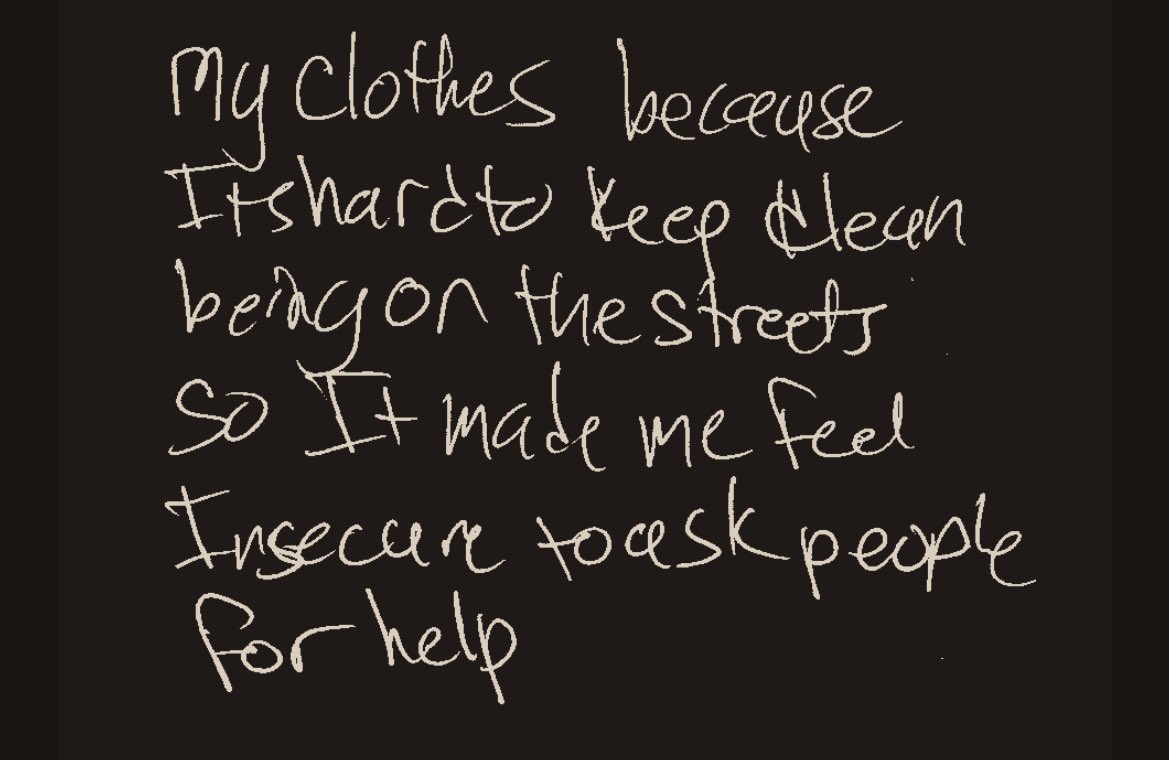 My clothes because
Its hard to keep clean
being on the streets
So It made me feel
Insecure to ask people
for help